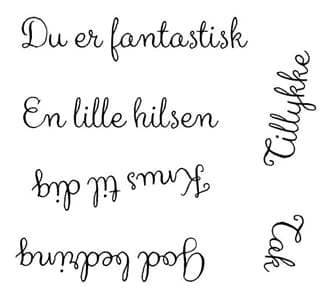 Du er fantastisk
En lille hilsen
Knus til dig
God bedring
Tillykke
Tak